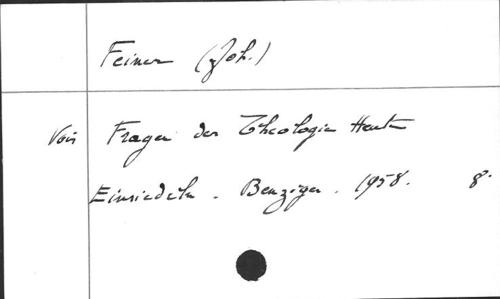 Feiner (Joh.)
Voir Fragen der Theologie Heute
Einsiedeln. Benziger. 1958. 8°